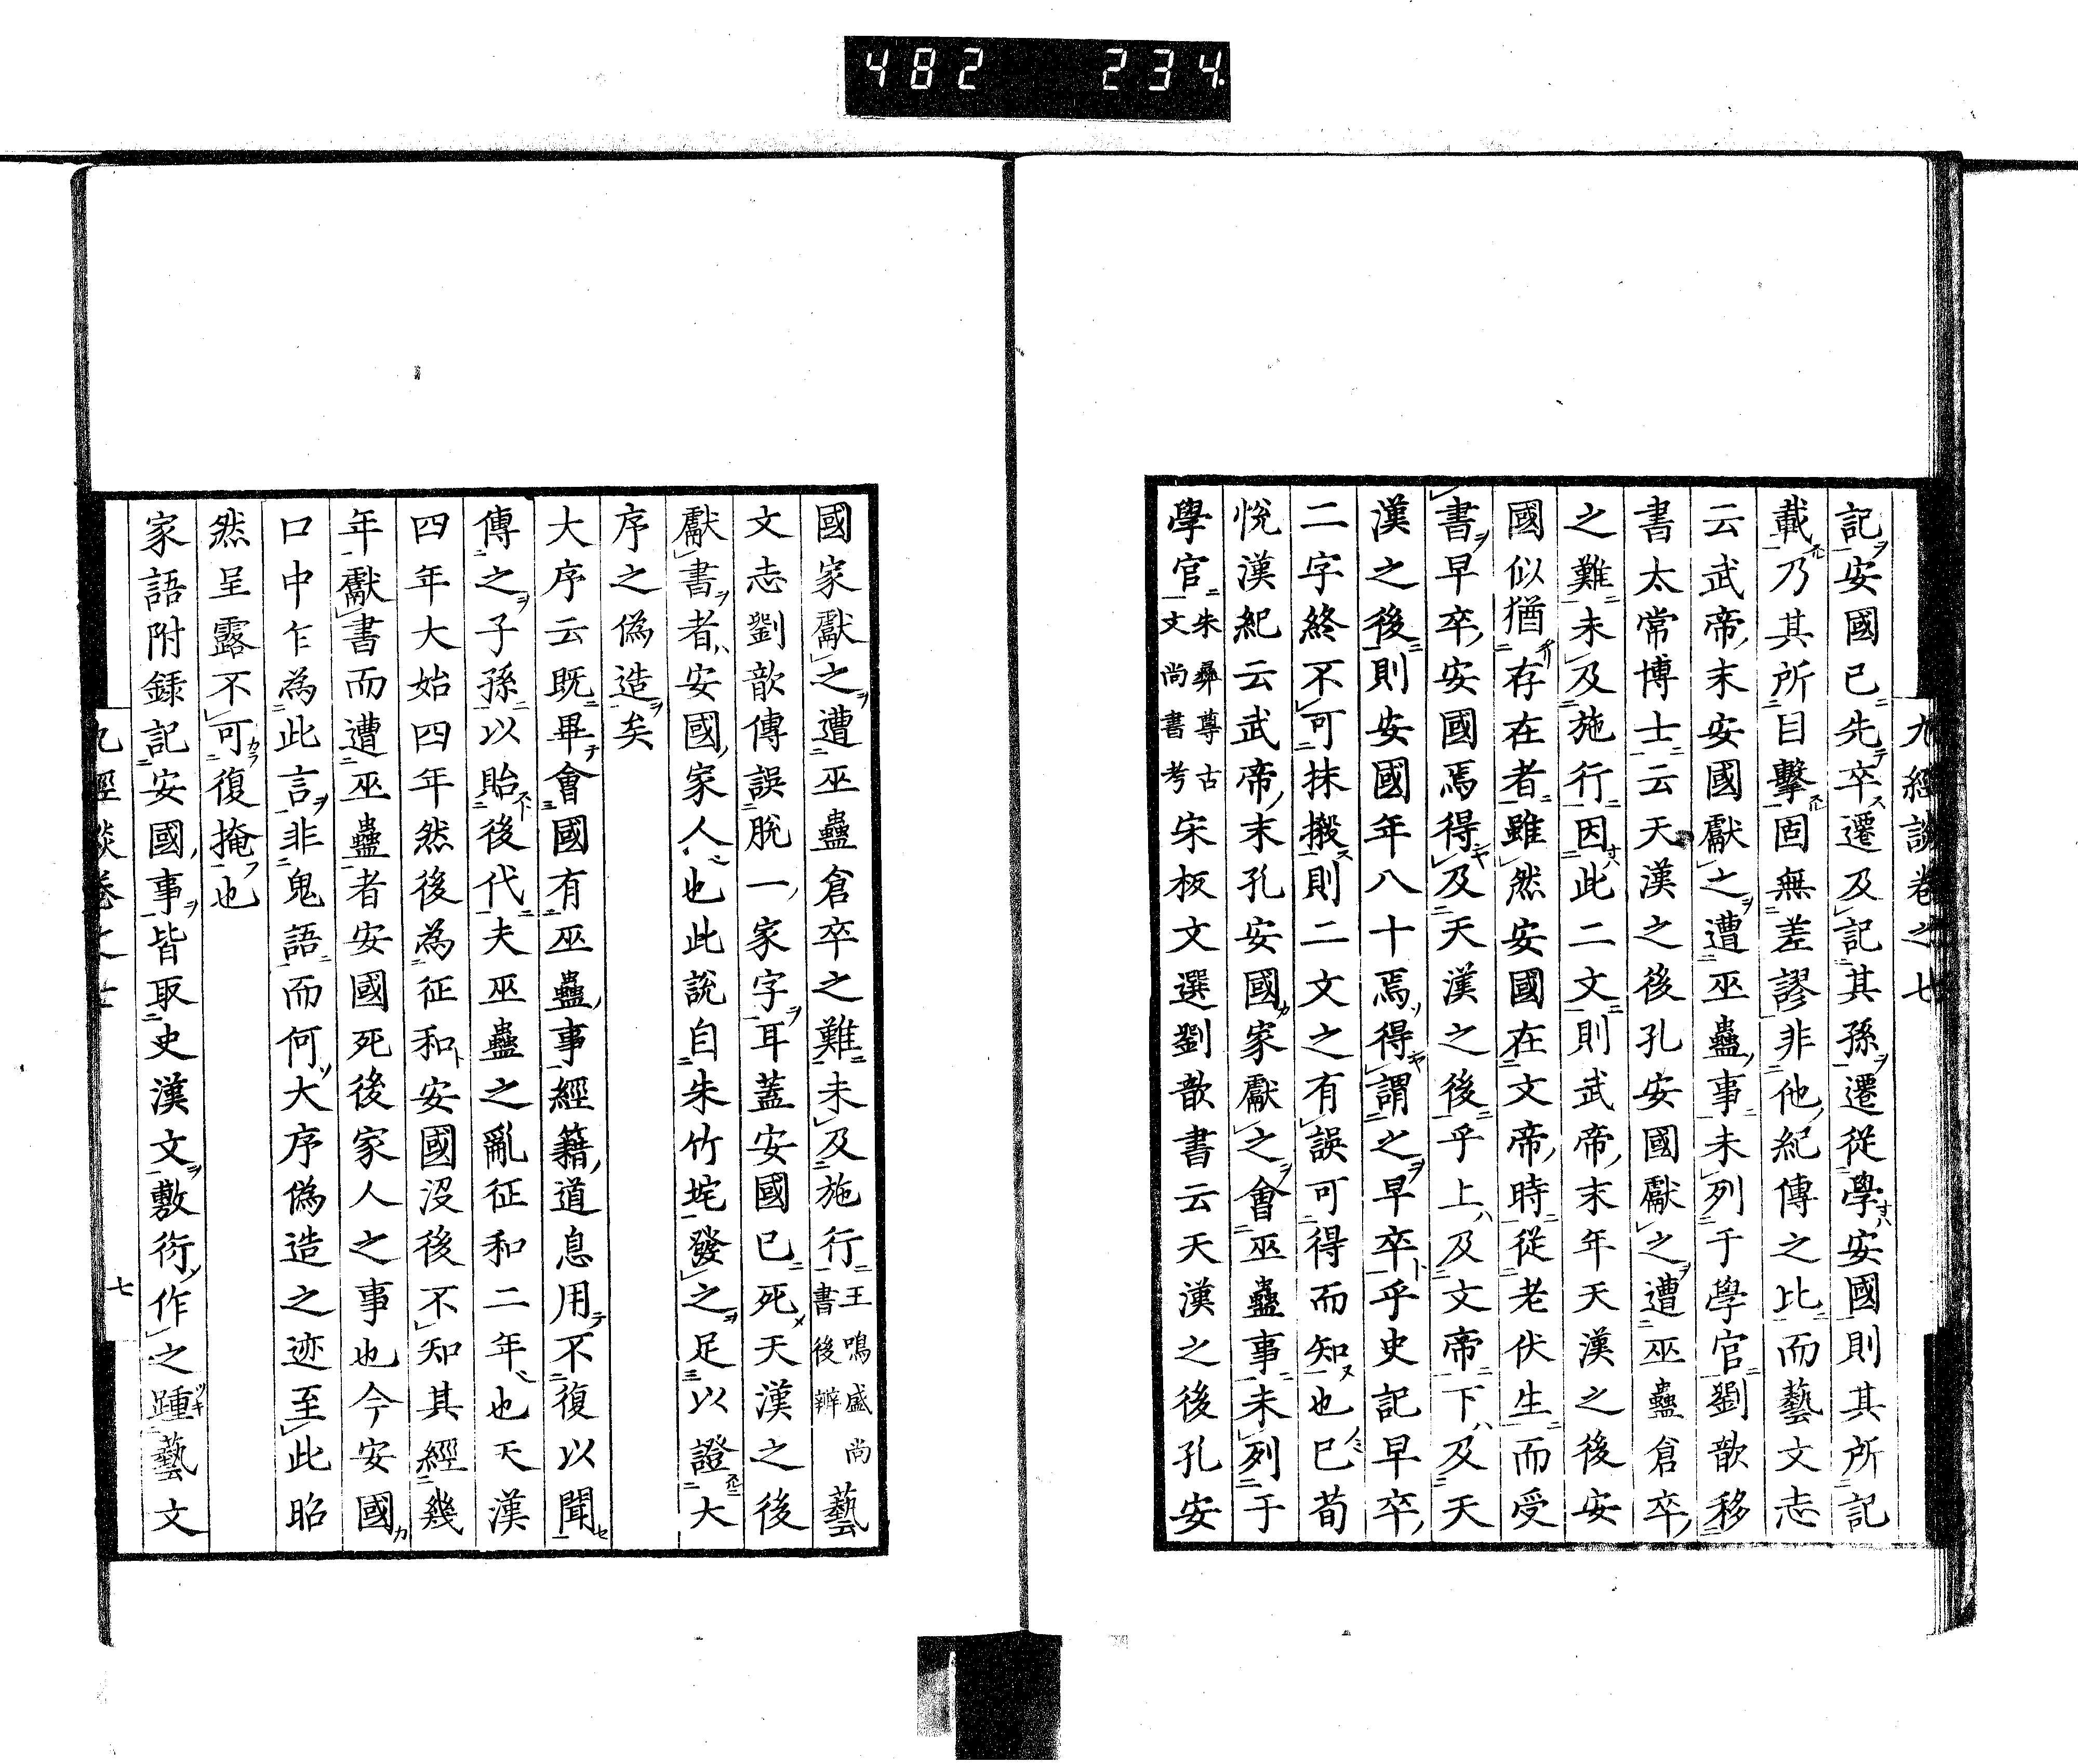 482 234
九經談卷之七
記安國已先卒遷及記其孫遷從學安國則其所記
載乃其所目擊固無差謬非他紀傳之比而藝文志
云武帝末安國獻之遭巫蠱事未列于學官劉歆移
書太常博士云天漢之後孔安國獻之遭巫蠱倉卒
之難未及施行因此二文則武帝末年天漢之後安
國似猶存在者雖然安國在文帝時從老伏生而受
書早卒安國焉得及天漢之後乎上及文帝下及天
漢之後則安國年八十焉得謂之早卒乎史記早卒
二字終不可抹搬則二文之有誤可得而知也已荀
悅漢紀云武帝末孔安國家獻之會巫蠱事未列于
學官朱彝尊古文尚書考宋板文選劉歆書云天漢之後孔安
國家獻之遭巫蠱倉卒之難未及施行王鳴盛尚書後辨藝
文志劉歆傳誤脫一家字耳蓋安國已死天漢之後
獻書者安國家人也此說自朱竹垞發之足以證大
序之偽造矣
大序云既畢會國有巫蠱事經籍道息用不復以聞
傳之子孫以貽後代夫巫蠱之亂征和二年也天漢
四年大始四年然後為征和安國沒後不知其經幾
年獻書而遭巫蠱者安國死後家人之事也今安國
口中乍為此言非鬼語而何大序偽造之迹至此昭
然呈露不可復掩也
家語附錄記安國事皆取史漢文敷衍作之踵藝文
九經談卷之七
七